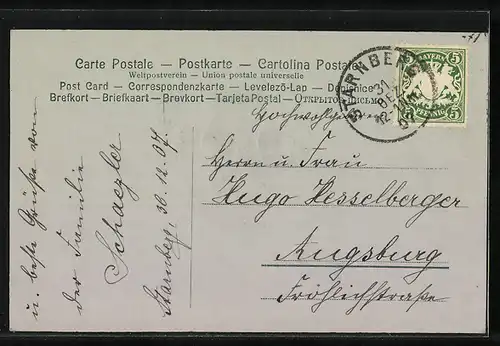 Carte Postale — Postkarte — Cartolina Postale
Weltpostverein — Union postale universelle
Post Card — Correspondenzkarte — Levelező-Lap —
Brefkort — Briefkaart — Brevkort — Tarjeta Postal —
STARNBERG
31
12-1
07
BAYERN
5 5
PFENNIG
Herrn u. Frau
Hugo Hesselberger
Augsburg
Fröhlichstraße
u. beste Grüße von
der Familie
Schaezler
Starnberg, 30.12.07.